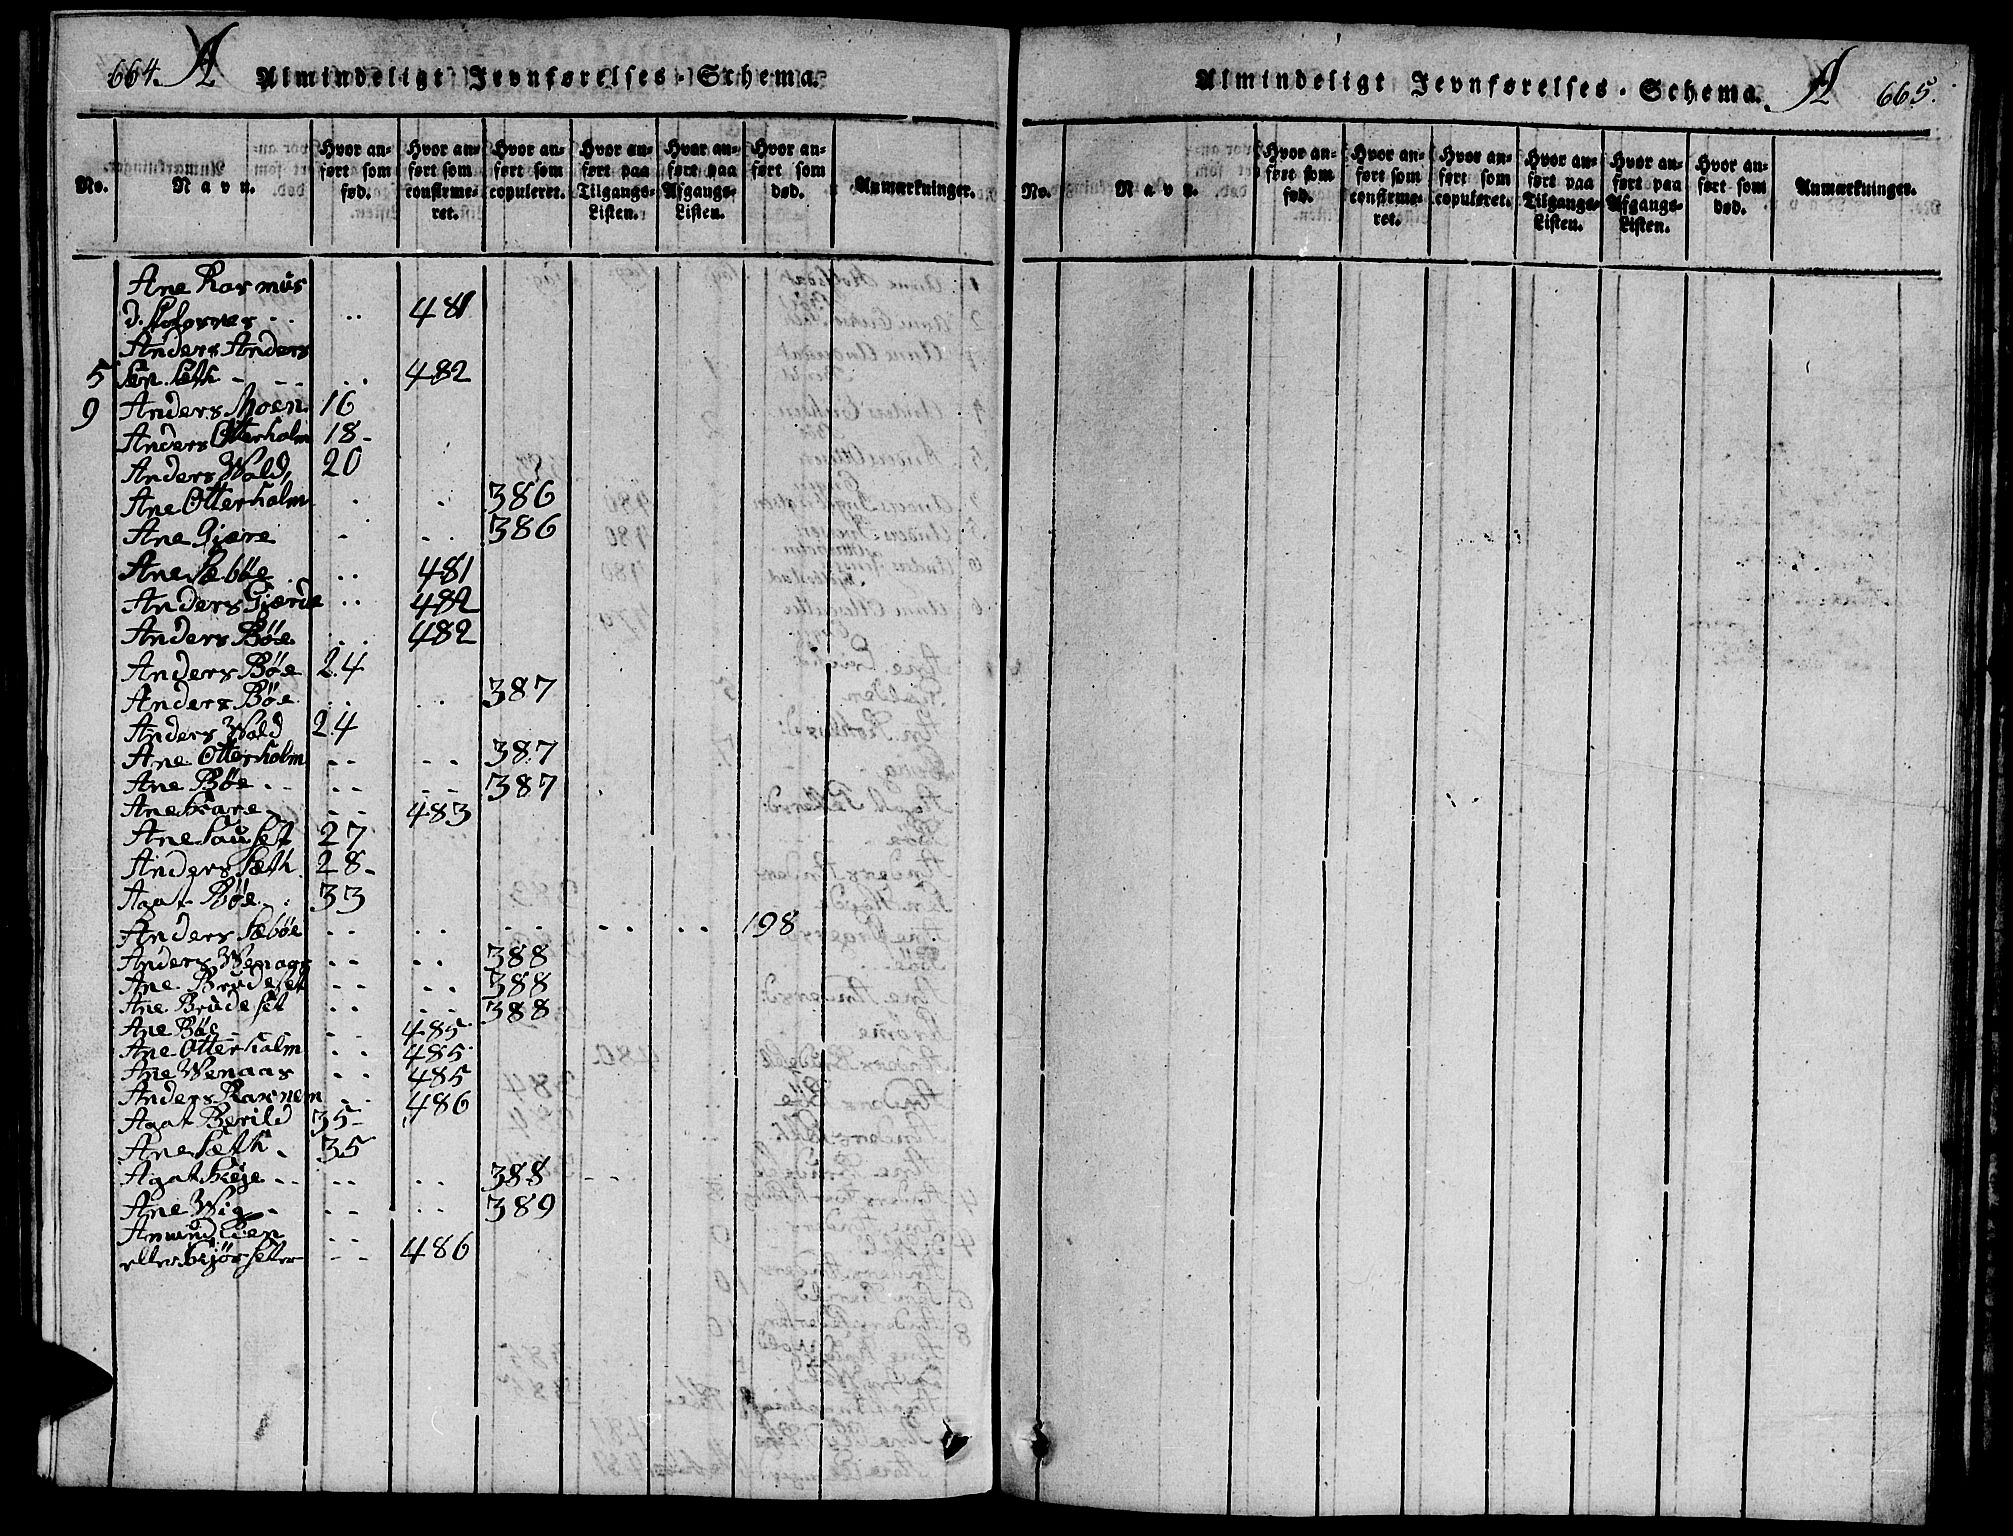 664. A Almindeligt Jevnførelses-Schema.
No. Navn. Hvor anført som fød. Hvor anført som confirmeret. Hvor anført som copuleret. Hvor anført paa Tilgangs-Listen. Hvor anført paa Afgangs-Listen. Hvor anført som død. Anmærkninger.
Ane Rasmus
d. .. 481
Anders Anders
5 Søn Sæth - .. 482
9 Anders Moen 16
Anders Otterholm 18-
Anders Wold, 20
Ane Otterholm . .. 386
Ane Giære - .. 386
Ane Sæbøe .. 481
Anders Gierde .. 482
Anders Bøe .. 482
Anders Bøe 24
Anders Bøe .. .. 387
Anders Wold 24
Ane Otterholm -- -- 387
Ane Bøe -- -- 387
Ane -- 483
Ane Sauset 27
Anders Sæth 28-
Agat Bøe 33
Anders Sæbøe .. .. .. .. .. 198
Anders Wenaas -- .. 388
Ane Brudeset -- .. 388
Ane Brudeset .. .. 388
Ane Bøe - 485
Ane Otterholm .. 485
Ane Wenaas .. 485
Anders .. 486
Agat Berild 35-
Ane Sæth - 35
Agat .. .. 388 --
Ane Wig - .. .. 389
Amund
eller -- 486
Almindeligt Jevnførelses-Schema. A 665.
No. Navn. Hvor anført som fød. Hvor anført som confirmeret. Hvor anført som copuleret. Hvor anført paa Tilgangs-Listen. Hvor anført paa Afgangs-Listen. Hvor anført som død. Anmærkninger.